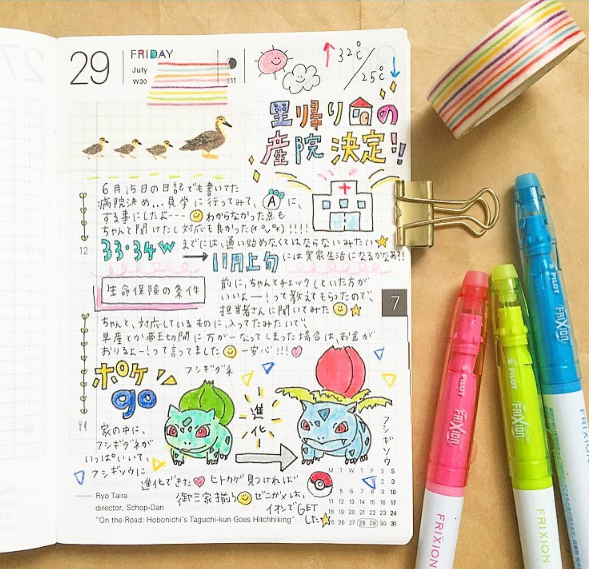 29
FRIDAY
July
W30
211
32℃/25℃
里帰りの
産院 決定!!
6月15日の日記でも書いてた
病院決め...見学に行ってみて、Aに、
する事にしたよーー わからなかった点も
ちゃんと聞けたし対応も良かった(*^o^*)!!!!
33·34W までには、通い始めなくてはならないみたい
→11月上旬には実家生活になるかなあ?!
12
生命保険の条件
前に、ちゃんとチェックしていた方が
いいよー!って教えてもらったので、
担当者さんに聞いてみた
7
ちゃんと、対応しているものに、入ってたみたいで、
早産とか帝王切開に万が一なってしまった場合は、お金が
おりるよー!って言ってました 一安心!!!
ポケ
go
フシギダネ
進化
フシギソウ
家の中に、
フシギダネが
いっぱいいて、
フシギソウに
進化できた ヒトカゲ見つければ
御三家揃う ゼニガメは、
イオンでGET
した
Ryo Taira
director, Schop-Dan
"On the Road: Hobonichi's Taguchi-kun Goes Hitchhiking"
M T W T F S S
1 2 3
4 5 6 7 8 9 10
11 12 13 14 15 16 17
18 19 20 21 22 23 24
25 26 27 28 29 30 31
PILOT
FRIXION
PILOT
FRIXION
PILOT
FRIXION
FRIXION
FRIXION